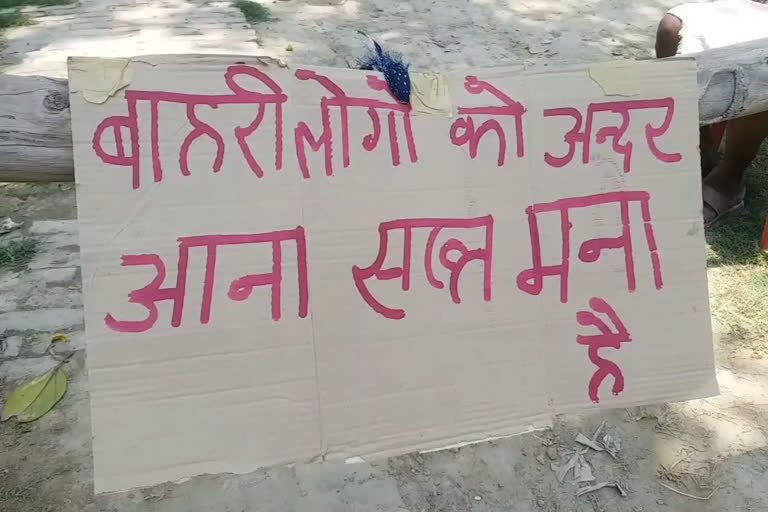 बाहरी लोगों को अन्दर
आना सख्त मना
है